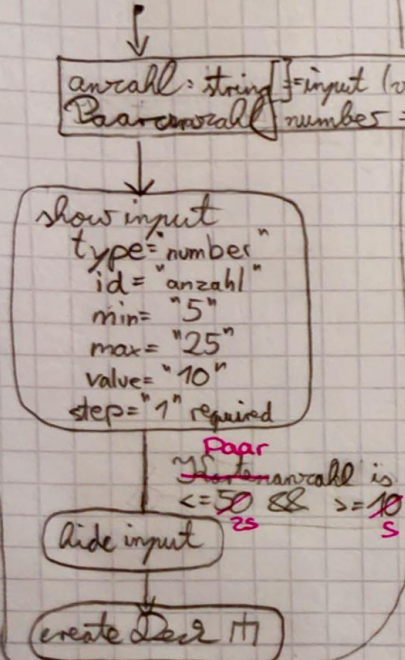 anzahl: string[]=input (v
Paaranzahl[number =
show input
type="number"
id="anzahl"
min= "5"
max= "25"
value="10"
step="1" required
Paar
Kartenanzahl is
<=50 && >=10
25 5
hide input
create Deck